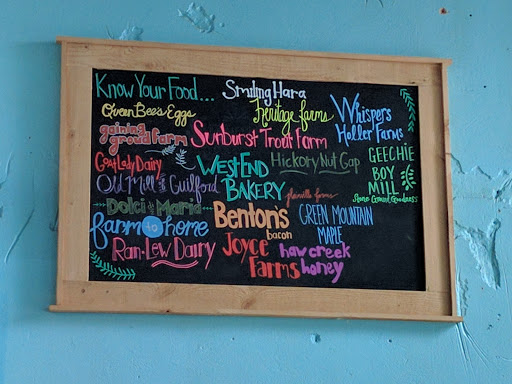 Know Your Food...
Smiling Hara
Queen Bee's Eggs
heritage farms
Whispers
Holler Farms
gaining
ground farm
Sunburst Trout Farm
Goat Lady Dairy
WEST END
BAKERY
Hickory Nut Gap
GEECHIE
BOY
MILL
Old Mill of Guilford
plainville farms
Dolci di Maria
Benton's
bacon
GREEN MOUNTAIN
MAPLE
farm to home
Ran-Lew Dairy
Joyce
Farms
haw creek
honey